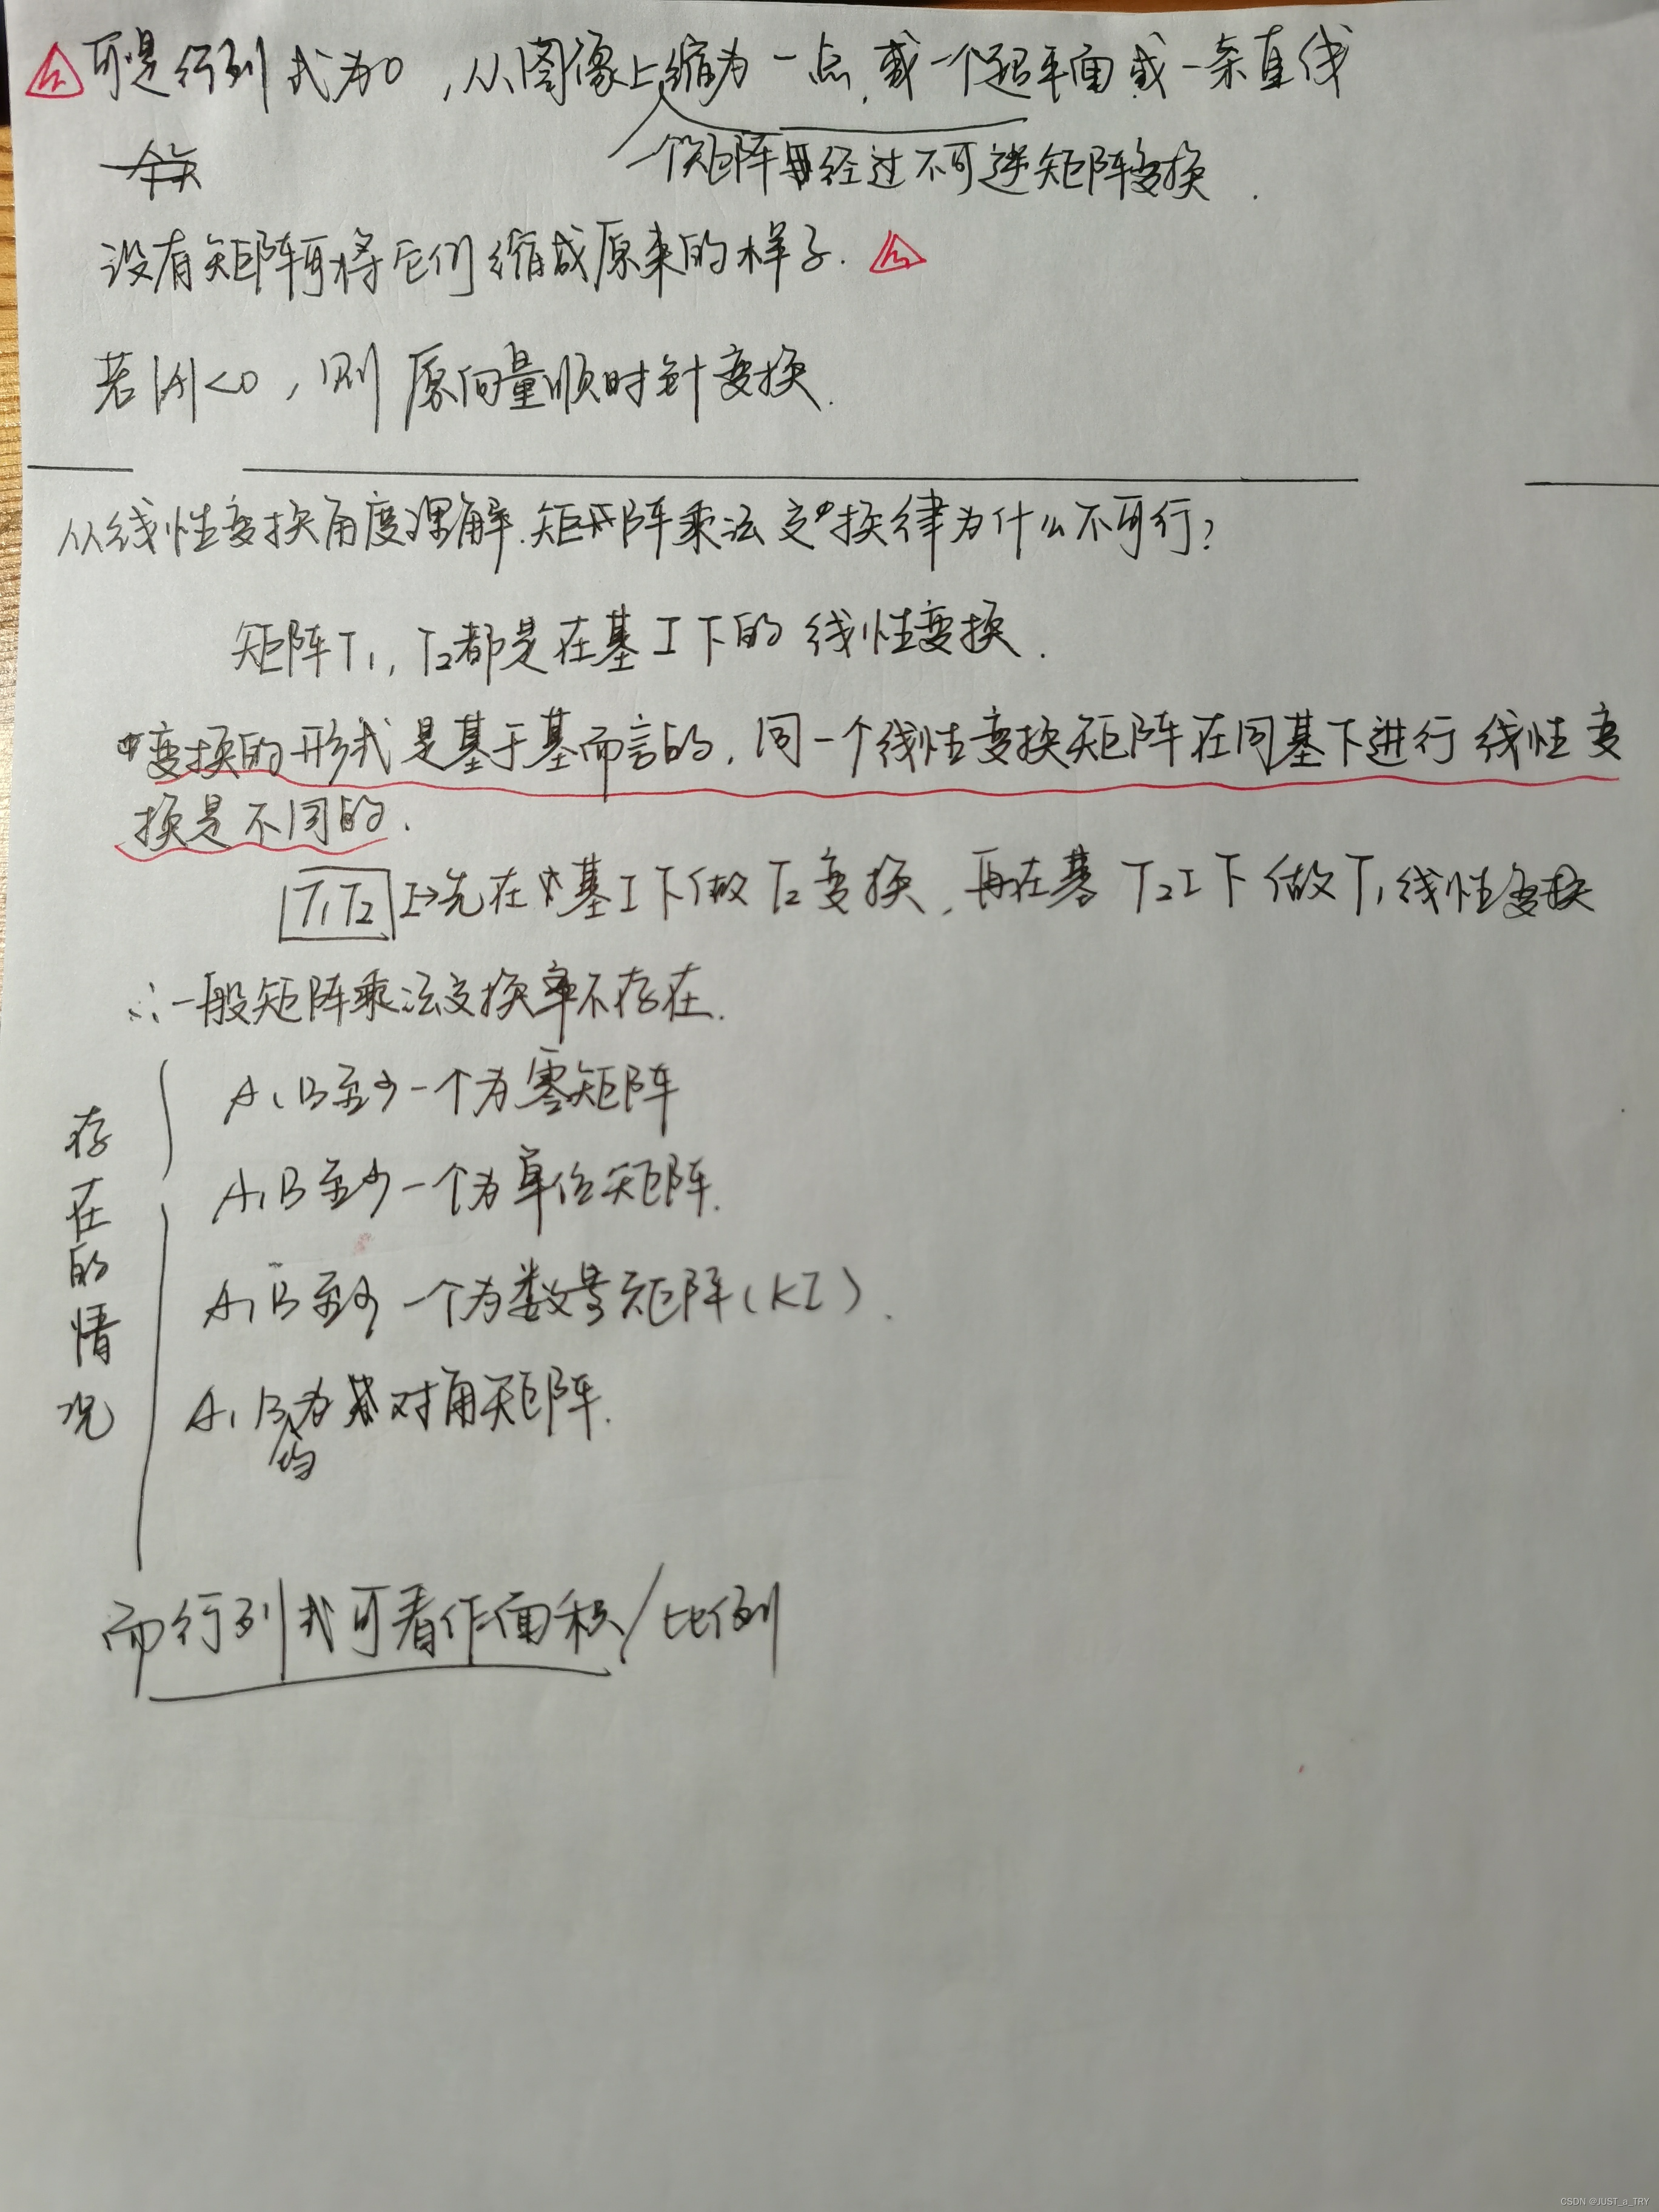 可是行列式为0，从图像上缩为一点，或一个超平面或一条直线
一个矩阵经过不可逆矩阵变换.
没有矩阵可将它们缩成原来的样子.
若|A|<0，则原向量顺时针变换.
从线性变换角度理解.矩阵乘法交换律为什么不可行?
矩阵T₁, T₂都是在基I下的线性变换.
变换的形式是基于基而言的，同一个线性变换矩阵在同基下进行线性变
换是不同的.
T₁T₂ I→先在基I下做T₂变换，再在基T₂I下做T₁线性变换
∴一般矩阵乘法交换率不存在.
存在的情况
A、B至少一个为零矩阵
A, B至少一个为单位矩阵.
A, B至少一个为数量矩阵(KI).
A, B均为对角矩阵.
而行列式可看作面积/比例
CSDN @JUST_a_TRY